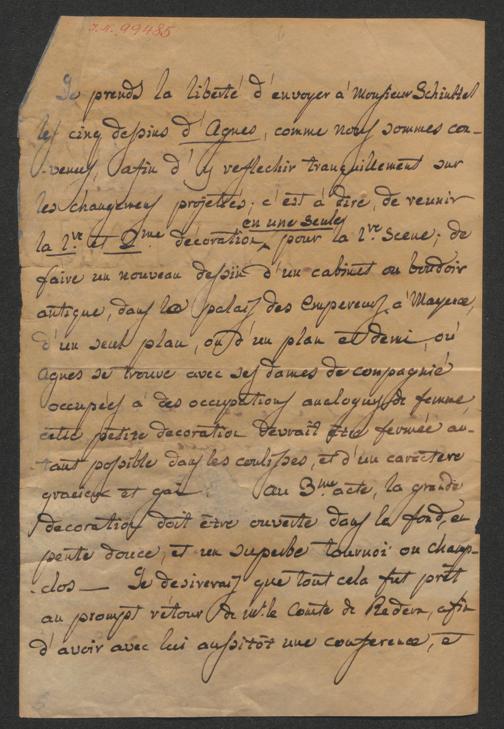 J. N. 99485
Je prends la liberté d'envoyer à Monsieur Schinkel
les cinq dessins d'Agnes, comme nous sommes con-
-venus afin d'y reflechir tranquillement sur
les changemens projettés; c'est à dire, de reunir
en une seule
la 1.re et 2me décoration pour la 1.re Scene; de
faire un nouveau dessin d'un cabinet ou boudoir
antique, dans le palais des Empereurs à Mayence,
d'un seul plan, ou d'un plan et demi, où
Agnes se trouve avec ses dames de compagnié
occupés à des occupations analogues de femme,
cette petite decoration devrait être fermée au-
tant possible dans les coulisses, et d'un caractere
gracieux et gai. Au 3.me acte, la grande
décoration doit être ouverte dans le fond, en
pente douce, et un superbe tournoi ou champ-
-clos — Je desirerais que tout cela fut prêt
au prompt rétour de Mr. le Comte de Redern, afin
d'avoir avec lui aussitôt une conference, et